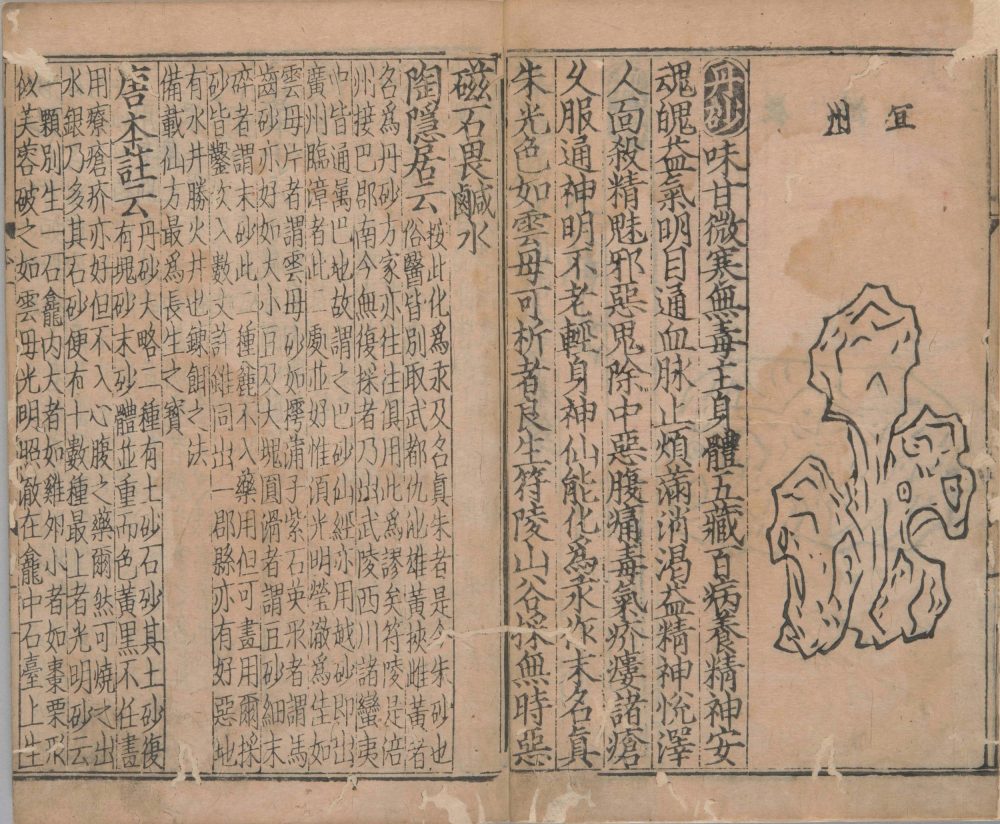 宜州
丹砂味甘微寒無毒主身體五藏百病養精神安
魂魄益氣明目通血脉止煩滿消渴益精神悅澤
人面殺精魅邪惡鬼除中惡腹痛毒氣疥瘻諸瘡
乆服通神明不老輕身神仙能化為汞作末名真
朱光色如雲母可析者良生符陵山谷採無時惡
磁石畏鹹水
陶隱居云按此化為汞及名真朱者是今朱砂也
俗醫皆別取武都仇池雄黃挾雌黃者
名為丹砂方家亦往往俱用此為謬矣符陵是涪
州接巴郡南今無復採者乃出武陵西川諸蠻夷
中皆通屬巴地故謂之巴砂仙經亦用越砂即出
廣州臨漳者此二處並好惟須光明瑩澈為佳如
雲母片者謂雲母砂如樗蒲子紫石英形者謂馬
齒砂亦好如大小豆及大塊圓滑者謂豆砂細末
碎者謂末砂此二種麄不入藥用但可畫用爾採
砂皆鑿坎入數丈許雖同出一郡縣亦有好惡地
有水井勝火井也鍊餌之法
備載仙方最為長生之寶
唐本註云丹砂大略二種有土砂石砂其土砂復
有塊砂末砂體並重而色黃黑不任畫
用療瘡疥亦好但不入心腹之藥爾然可燒之出
水銀乃多其石砂便有十數種最上者光明砂云
一顆別生一石龕內大者如雞卵小者如棗栗形
似芙蓉破之如雲母光明照澈在龕中石臺上生